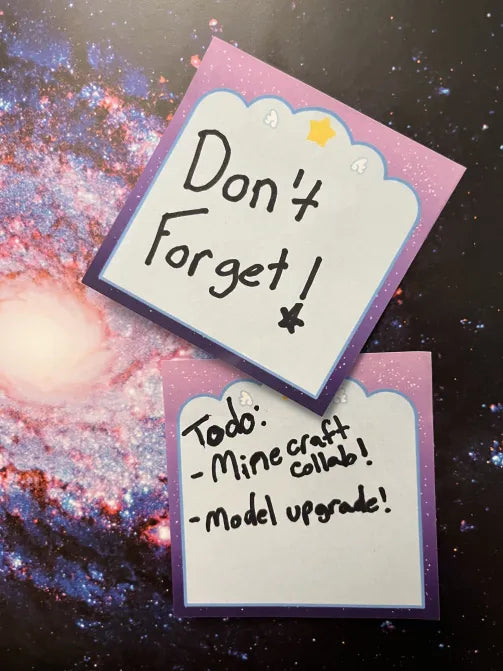 Don't
Forget!
Todo:
- Minecraft
collab!
- Model upgrade!